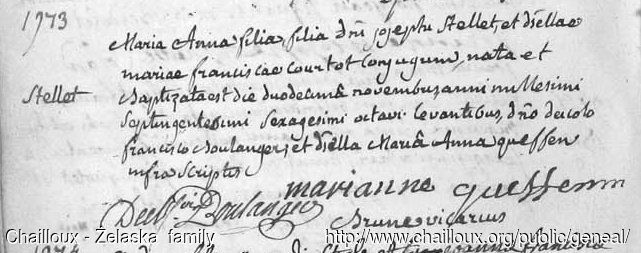 1973
Maria Anna filia, filia dni josephi Stellet, et dsellae
mariae franciscae courtot conjugum, nata et
Stellet
baptizata est die duodecima novembris, anni millesimi
septingentesimi sexagesimi octavi. levantibus, dno deicolo
francisco Boulanger, et dsella Mariâ Anna quessen
infra scriptis
marianne quessenn
Boulanger
Brune vicarius
Chailloux - Żelaska family
http://www.chailloux.org/public/geneal/
1974